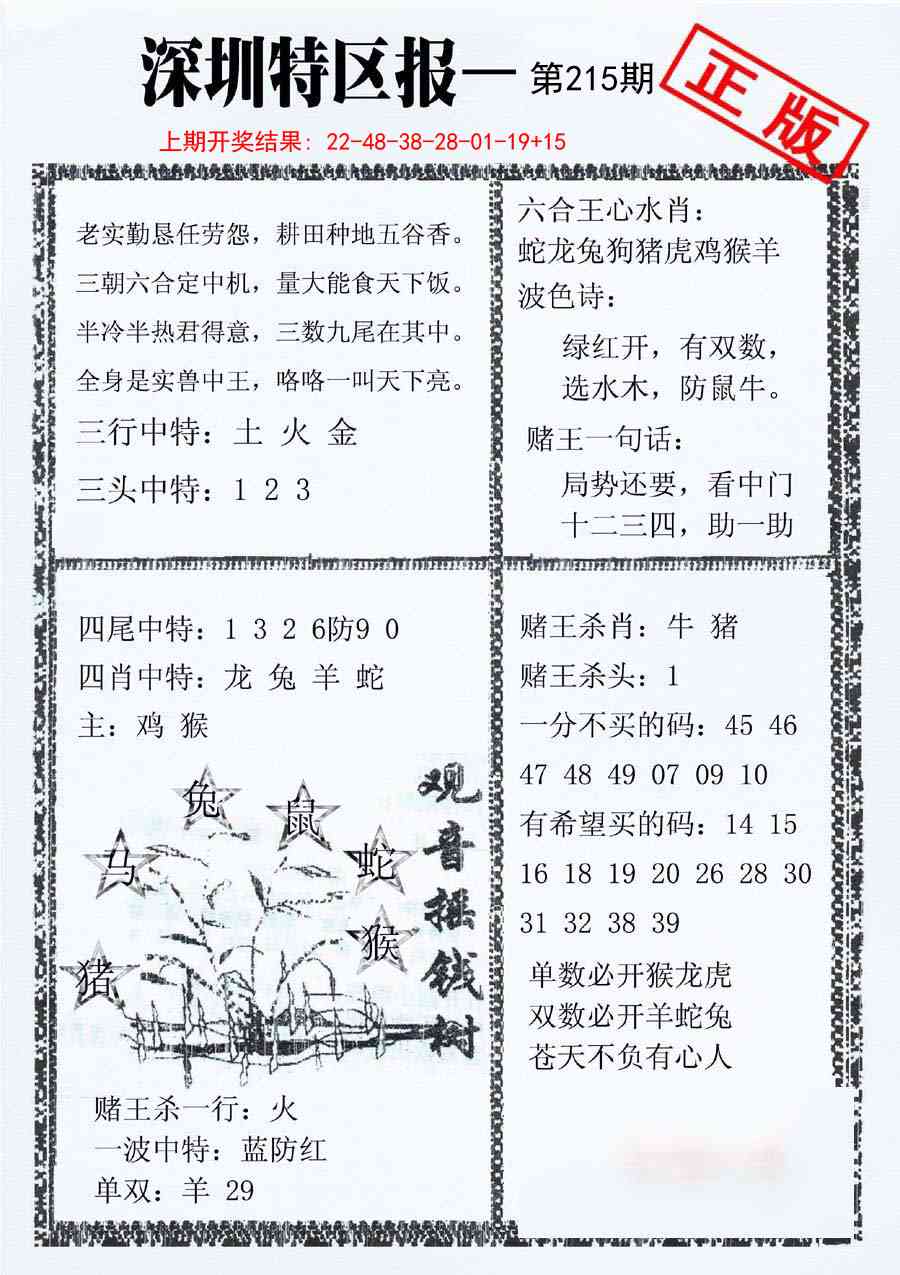 深圳特区报—第215期
正版
上期开奖结果：22-48-38-28-01-19+15
老实勤恳任劳怨，耕田种地五谷香。
三朝六合定中机，量大能食天下饭。
半冷半热君得意，三数九尾在其中。
全身是实兽中王，咯咯一叫天下亮。
三行中特：土 火 金
三头中特：1 2 3
六合王心水肖：
蛇龙兔狗猪虎鸡猴羊
波色诗：
绿红开，有双数，
选水木，防鼠牛。
赌王一句话：
局势还要，看中门
十二三四，助一助
四尾中特：1 3 2 6防9 0
四肖中特：龙 兔 羊 蛇
主：鸡 猴
兔
鼠
马
蛇
猴
猪
观音摇钱树
赌王杀一行：火
一波中特：蓝防红
单双：羊 29
赌王杀肖：牛 猪
赌王杀头：1
一分不买的码：45 46
47 48 49 07 09 10
有希望买的码：14 15
16 18 19 20 26 28 30
31 32 38 39
单数必开猴龙虎
双数必开羊蛇兔
苍天不负有心人